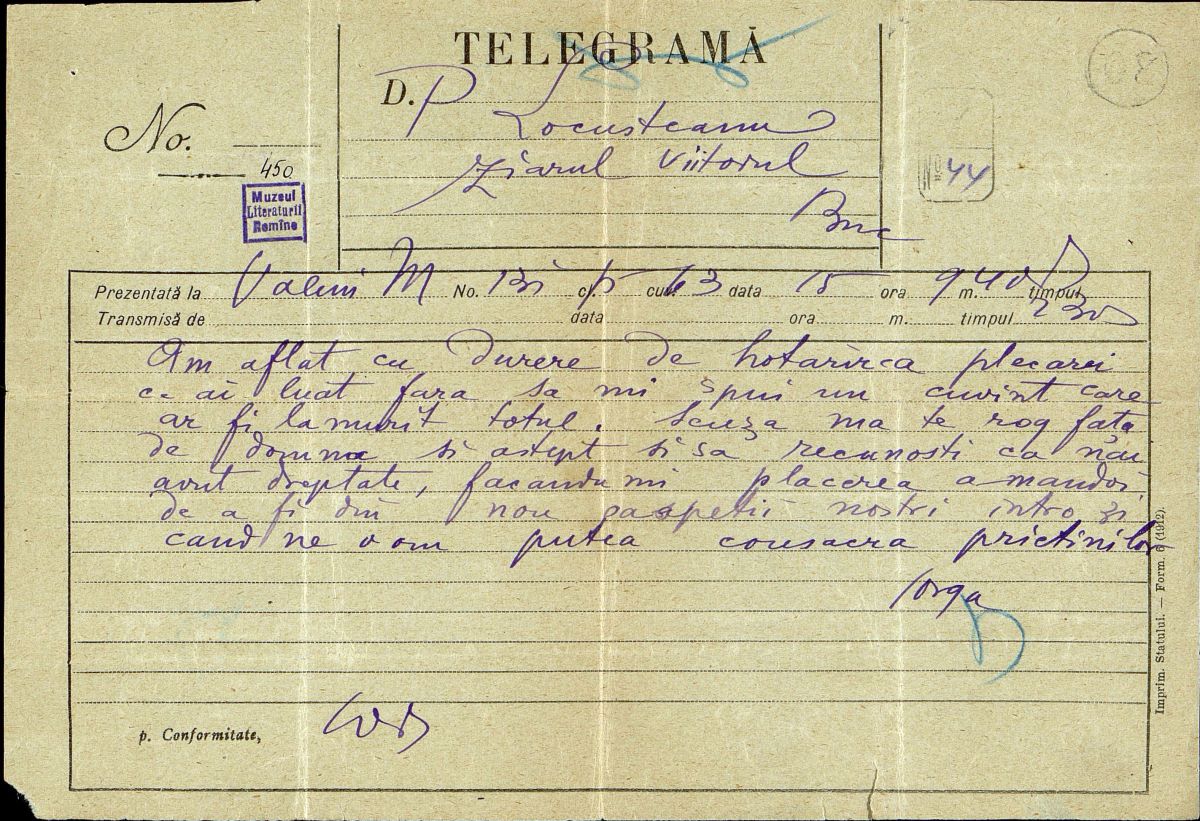 TELEGRAMĂ
D. P Locusteanu
No.
Ziarul Viitorul
450
Muzeul
Literaturii
Romîne
No 44
Buc
Prezentată la Valeni M No. 131 c. cuv. 63 data 15 ora 9 m. 40 timpul
Transmisă de data ora m. timpul
Am aflat cu durere de hotarirea plecarei
ce ai luat fara sa mi spui un cuvint care
ar fi lamurit totul. Scuza ma te rog fata
de domna si astept si sa recunosti ca nai
avut dreptate, facandu mi placerea amandoi
de a fi din nou oaspetii nostri intro zi
cand ne vom putea consacra prietinilor
Iorga
p. Conformitate,
Imprim. Statului. — Form. (1912).